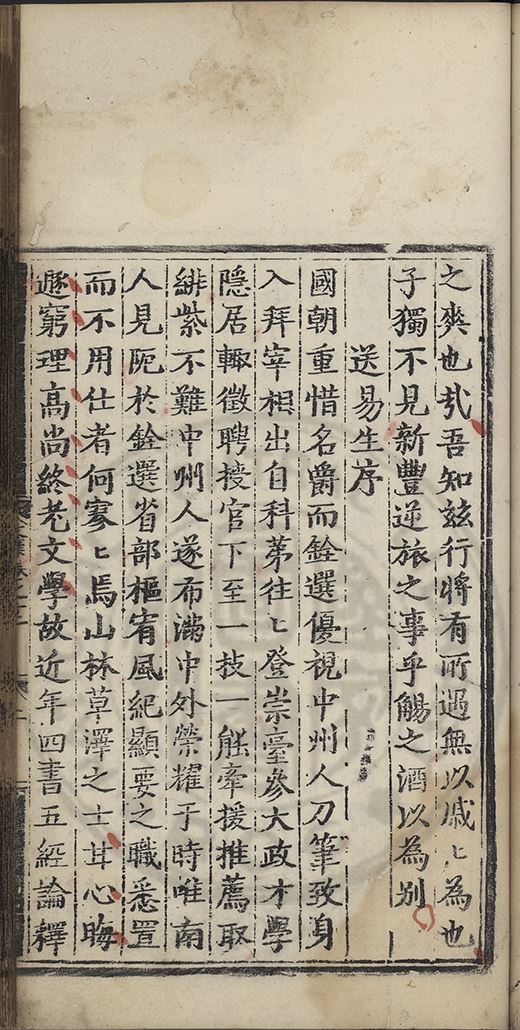 之爽也㢤吾知兹行將有所遇無以戚〻為也
子獨不見新豐逆旅之事乎觴之酒以為别
送易生序
國朝重惜名爵而銓選優視中州人刀筆致身
入拜宰相出自科苐徃〻登崇臺參大政才學
隠居輙徵聘授官下至一技一能牽援推薦取
緋紫不難中州人遂布滿中外榮耀于時唯南
人見阨於銓選省部樞宥風紀顯要之職悉置
而不用仕者何寥〻焉山林草澤之士甘心晦
遯窮理高尚終老文學故近年四書五經論釋